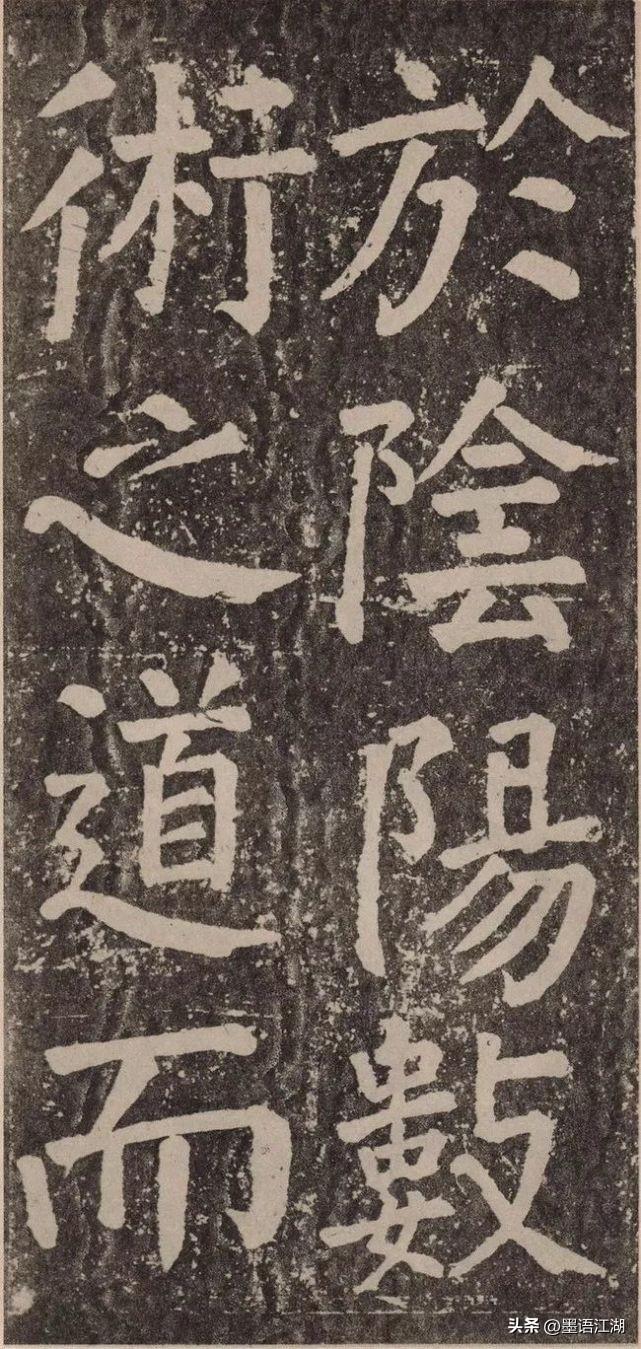 於陰陽數
術之道而
头条 @墨语江湖